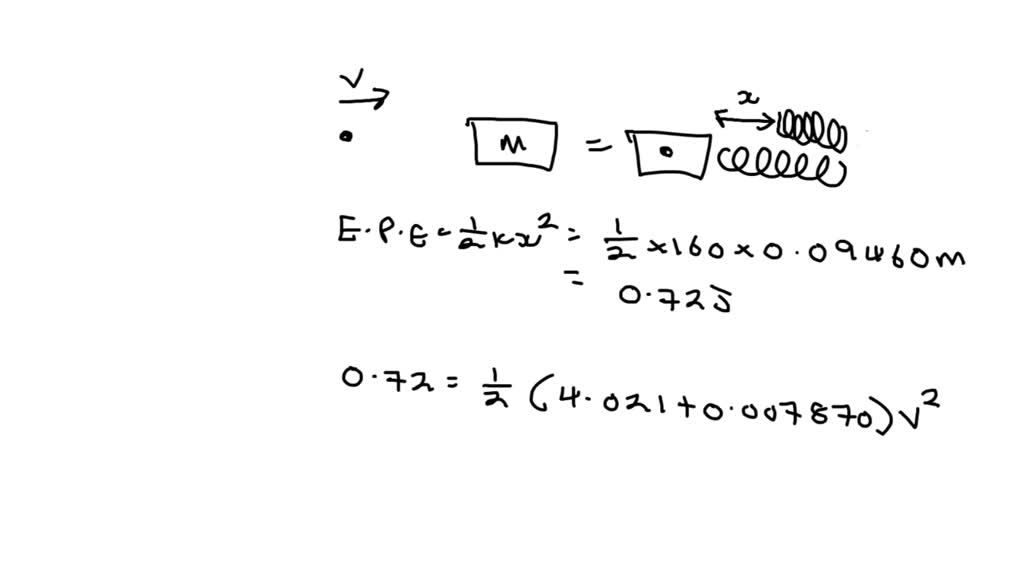 v
x
M =
E.P.E = 1/2 kx² = 1/2 × 160 × 0.09460m
= 0.72J
0.72 = 1/2 (4.021 + 0.007870) v²